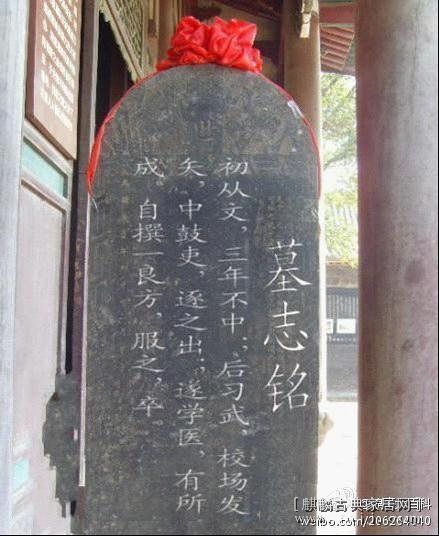 墓志铭
初从文，三年不中；后习武，校场发
矢，中鼓吏，逐之出；遂学医，有所
成。自撰一良方，服之，卒。
[ 麒麟古典家居网百科
weibo.com/206264040